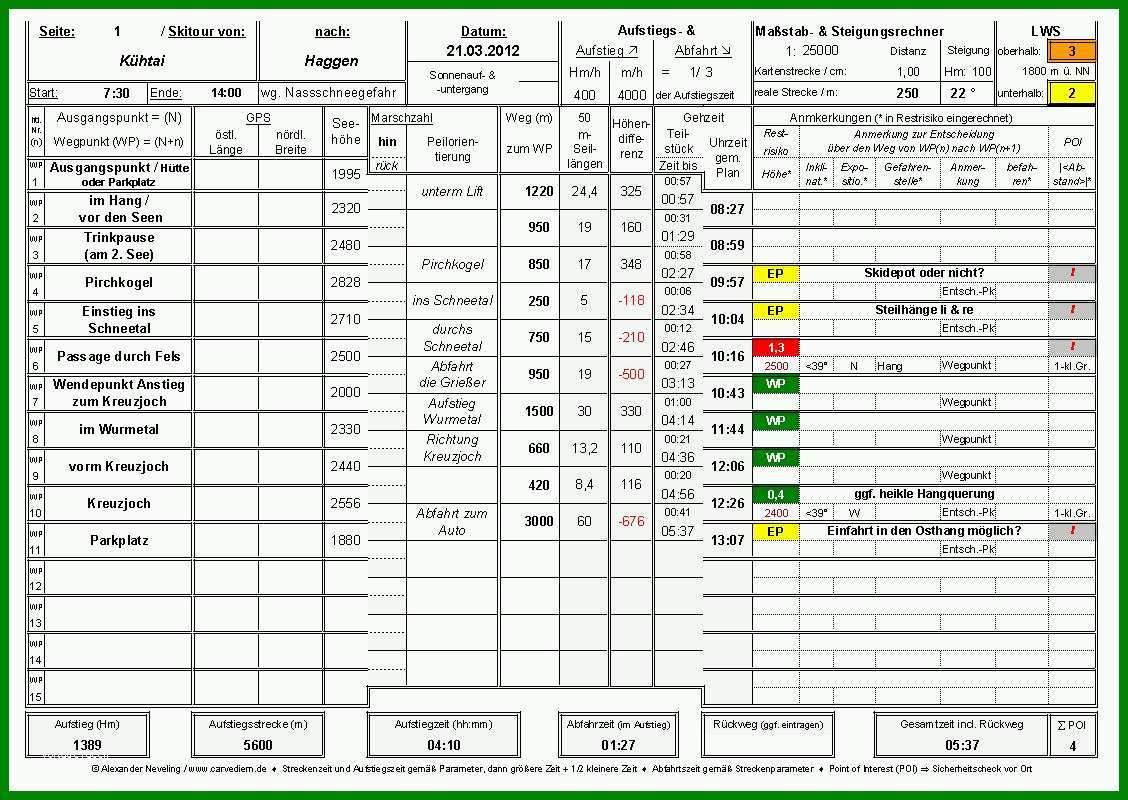 Seite: 1 / Skitour von: nach: Datum: Aufstiegs- & Maßstab- & Steigungsrechner LWS
Kühtai Haggen 21.03.2012 Aufstieg ↗ Abfahrt ↘ 1: 25000 Distanz Steigung oberhalb: 3
Sonnenauf- & -untergang Hm/h m/h = 1/ 3 Kartenstrecke / cm: 1,00 Hm: 100 1800 m ü. NN
Start: 7:30 Ende: 14:00 wg. Nassschneegefahr 400 4000 der Aufstiegszeit reale Strecke / m: 250 22 ° unterhalb: 2
lfd. Nr. (n) Ausgangspunkt = (N) GPS See-höhe Marschzahl Weg (m) 50 m-Seil-längen Höhen-differenz Gehzeit Anmkerkungen (* in Restrisiko eingerechnet)
Wegpunkt (WP) = (N+n) östl. Länge nördl. Breite hin rück Peilorien-tierung zum WP Teil-stück Zeit bis Uhrzeit gem. Plan Rest-risiko Höhe* Anmerkung zur Entscheidung über den Weg von WP(n) nach WP(n+1) POI
Inkli-nat.* Expo-sitio.* Gefahren-stelle* Anmer-kung befah-ren* |<Ab-stand>|*
WP 1 Ausgangspunkt / Hütte oder Parkplatz 1995
unterm Lift 1220 24,4 325 00:57 00:57 08:27
WP 2 im Hang / vor den Seen 2320
950 19 160 00:31 01:29 08:59
WP 3 Trinkpause (am 2. See) 2480
Pirchkogel 850 17 348 00:58 02:27 09:57 EP Skidepot oder nicht? !
Entsch.-Pk
WP 4 Pirchkogel 2828
ins Schneetal 250 5 -118 00:06 02:34 10:04 EP Steilhänge li & re !
Entsch.-Pk
WP 5 Einstieg ins Schneetal 2710
durchs Schneetal 750 15 -210 00:12 02:46 10:16 1,3 !
2500 <39° N Hang Wegpunkt 1-kl.Gr.
WP 6 Passage durch Fels 2500
Abfahrt die Grießer 950 19 -500 00:27 03:13 10:43 WP
Wegpunkt
WP 7 Wendepunkt Anstieg zum Kreuzjoch 2000
Aufstieg Wurmetal 1500 30 330 01:00 04:14 11:44 WP
Wegpunkt
WP 8 im Wurmetal 2330
Richtung Kreuzjoch 660 13,2 110 00:21 04:36 12:06 WP
Wegpunkt
WP 9 vorm Kreuzjoch 2440
420 8,4 116 00:20 04:56 12:26 0,4 ggf. heikle Hangquerung
2400 <39° W Entsch.-Pk 1-kl.Gr.
WP 10 Kreuzjoch 2556
Abfahrt zum Auto 3000 60 -676 00:41 05:37 13:07 EP Einfahrt in den Osthang möglich? !
Entsch.-Pk
WP 11 Parkplatz 1880
WP 12
WP 13
WP 14
WP 15
Aufstieg (Hm) Aufstiegsstrecke (m) Aufstiegzeit (hh:mm) Abfahrzeit (im Aufstieg) Rückweg (ggf. eintragen) Gesamtzeit incl. Rückweg ∑ POI
1389 5600 04:10 01:27 05:37 4
© Alexander Neveling / www.carvediem.de ♦ Streckenzeit und Aufstiegszeit gemäß Parameter, dann größere Zeit + 1/2 kleinere Zeit ♦ Abfahrtszeit gemäß Streckenparameter ♦ Point of Interest (POI) ⇒ Sicherheitscheck vor Ort